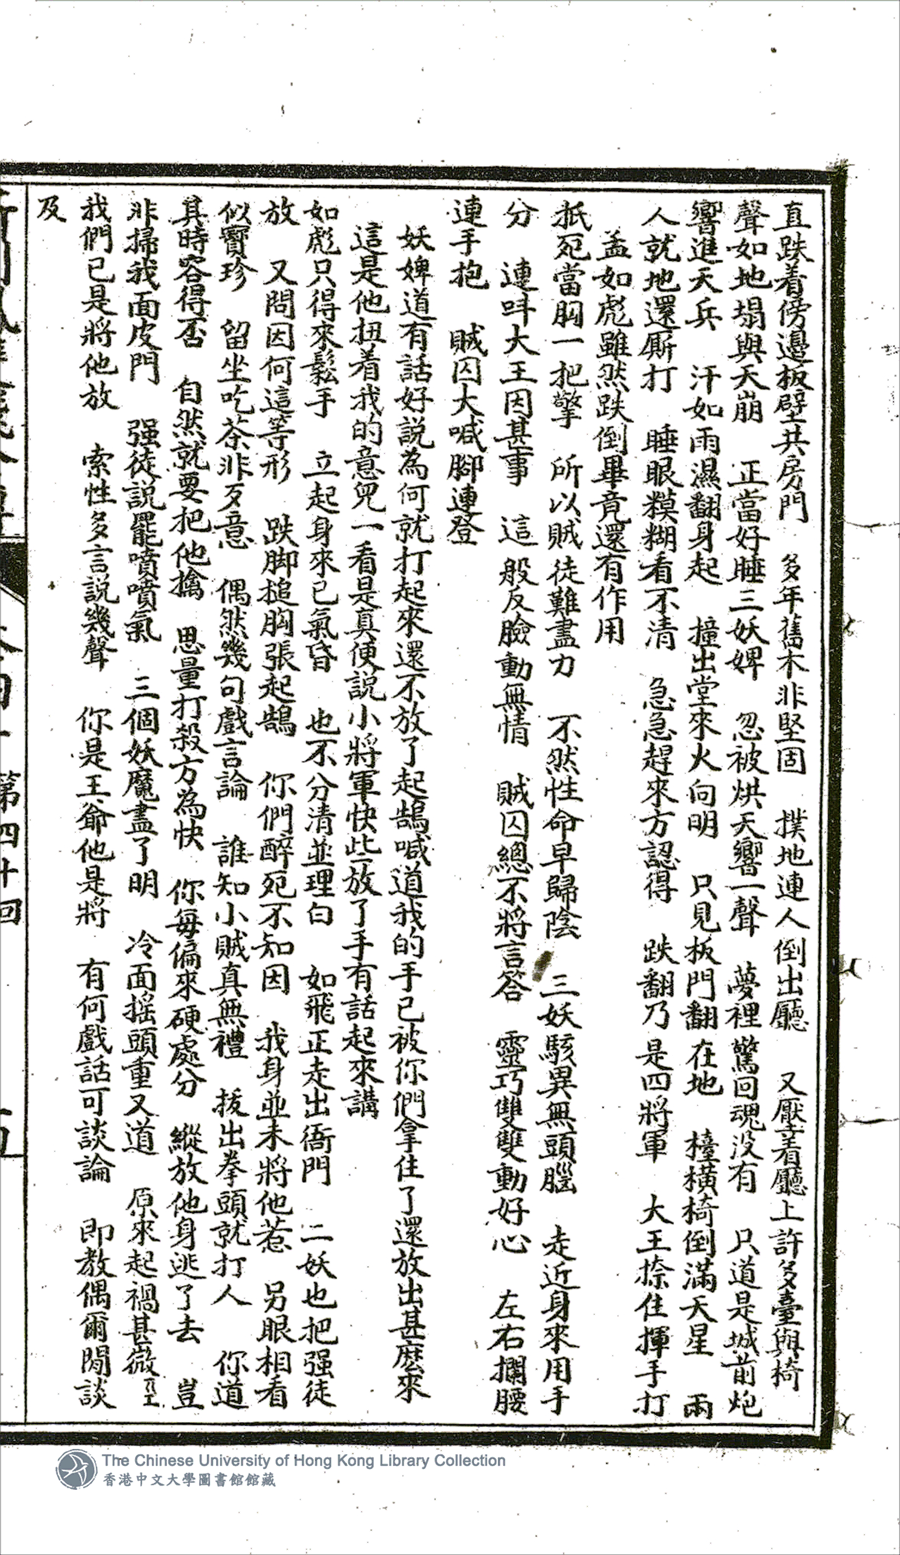 直跌着傍邊板壁共房門　多年舊木非堅固　撲地連人倒出廳　又壓着廳上許多臺與椅
聲如地塌與天崩　正當好睡三妖婢　忽被烘天響一聲　夢裡驚回魂没有　只道是城前炮
響進天兵　汗如雨濕翻身起　撞出堂來火向明　只見板門翻在地　檯橫椅倒滿天星　兩
人就地還厮打　睡眼糢糊看不清　急急趕來方認得　跌翻乃是四將軍　大王捺住揮手打
孟如彪雖然跌倒畢竟還有作用
抵死當胸一把擎　所以賊徒難盡力　不然性命早歸陰　三妖駭異無頭腦　走近身來用手
分　連呌大王因甚事　這般反臉動無情　賊囚總不將言答　靈巧雙雙動好心　左右攔腰
連手抱　賊囚大喊脚連登
妖婢道有話好説為何就打起來還不放了起鵠喊道我的手已被你們拿住了還放出甚麽來
這是他扭着我的意兒一看是真便説小將軍快些放了手有話起來講
如彪只得來鬆手　立起身來已氣昏　也不分清並理白　如飛正走出衙門　二妖也把强徒
放　又問因何這等形　跌脚搥胸張起鵠　你們醉死不知因　我身並未將他惹　另眼相看
似寶珍　留坐吃茶非歹意　偶然幾句戲言論　誰知小賊真無禮　拔出拳頭就打人　你道
其時容得否　自然就要把他擒　思量打殺方為快　你每偏來硬處分　縱放他身逃了去　豈
非掃我面皮門　强徒説罷噴噴氣　三個妖魔盡了明　冷面摇頭重又道　原來起禍甚微
我們已是將他放　索性多言説幾聲　你是王爺他是將　有何戲話可談論　即教偶爾閒談
及
第四十回
The Chinese University of Hong Kong Library Collection
香港中文大學圖書館館藏